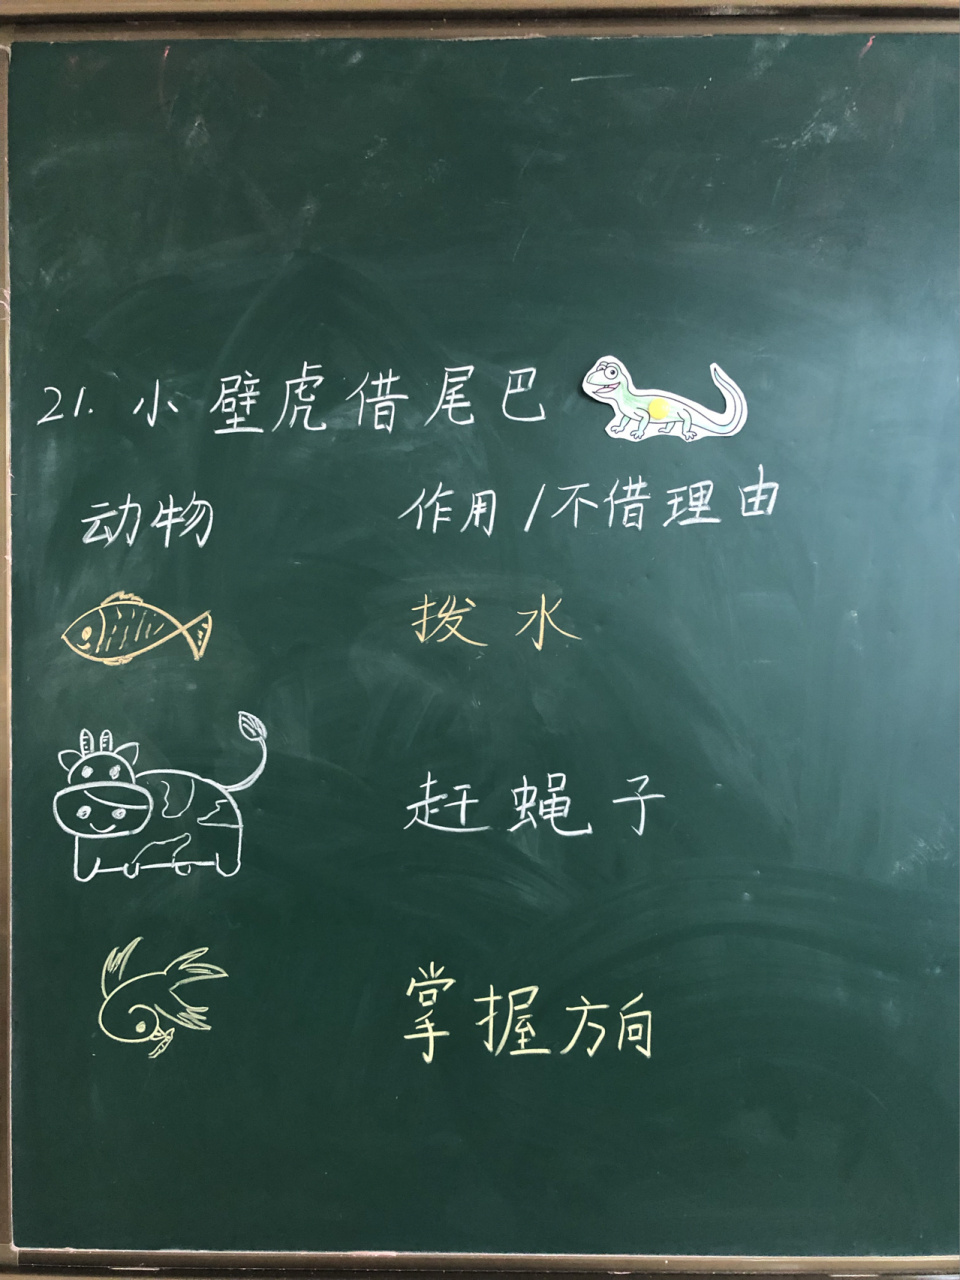 21. 小壁虎借尾巴
动物 作用/不借理由
拨水
赶蝇子
掌握方向